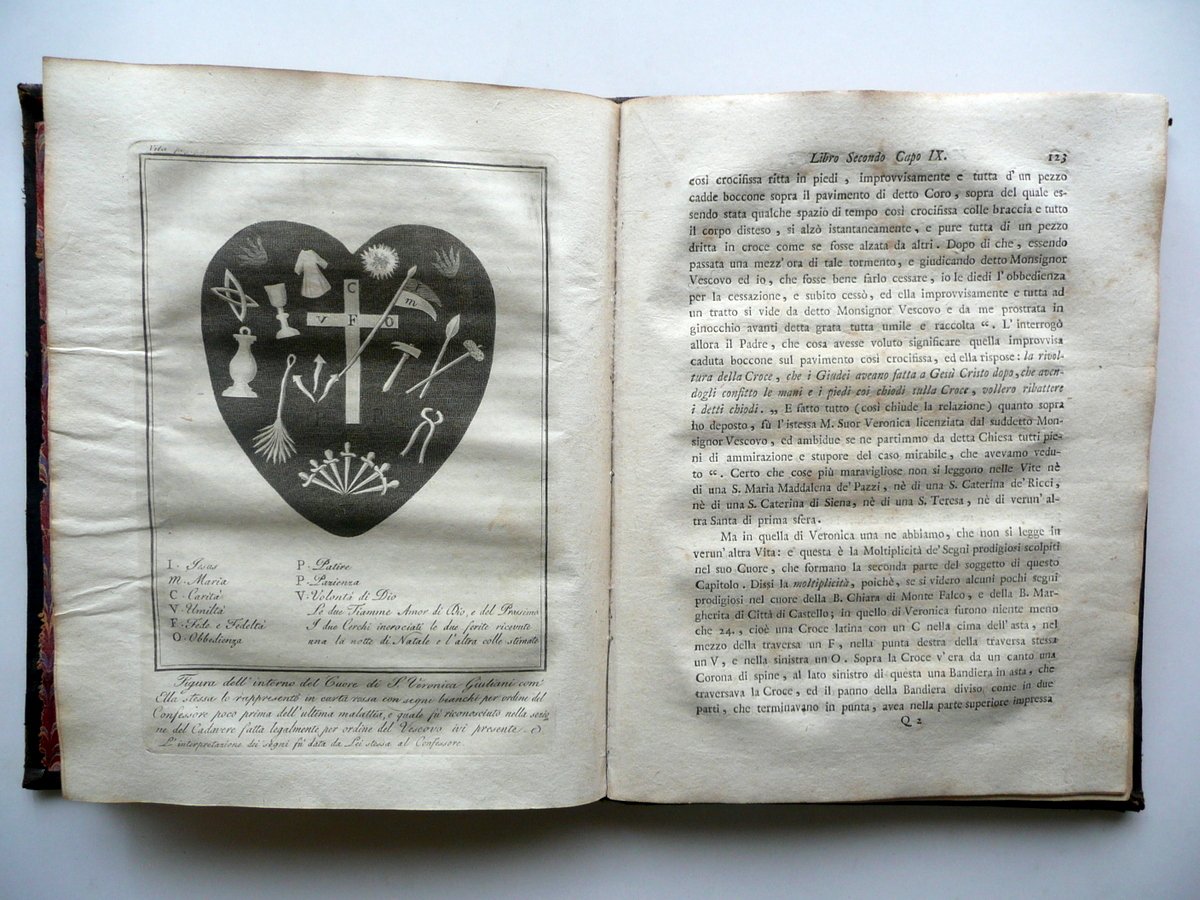 Vita
C
V F O
m
P
I . Jesus
m . Maria
C . Carità
V . Umiltà
F . Fede e Fedeltà
O . Obbedienza
P . Patire
P . Pazienza
V . Volontà di Dio
Le due Fiamme Amor di Dio, e del Prossimo
I due Cerchi incrociati le due ferite ricevute
una la notte di Natale e l'altra colle stimate
Figura dell' interno del Cuore di S. Veronica Giuliani com'
Ella stessa lo rappresentò in carta rossa con segni bianchi per ordine del
Confessore poco prima dell' ultima malattia, e quale fù riconosciuto nella sezio
ne del Cadavere fatta legalmente per ordine del Vescovo ivi presente.
L' interpretazione dei segni fù data da Lei stessa al Confessore.
Libro Secondo Capo IX. 123
così crocifissa ritta in piedi , improvvisamente e tutta d' un pezzo
cadde boccone sopra il pavimento di detto Coro , sopra del quale es-
sendo stata qualche spazio di tempo così crocifissa colle braccia e tutto
il corpo disteso , si alzò istantaneamente , e pure tutta di un pezzo
dritta in croce come se fosse alzata da altri . Dopo di che , essendo
passata una mezz' ora di tale tormento , e giudicando detto Monsignor
Vescovo ed io , che fosse bene farlo cessare , io le diedi l' obbedienza
per la cessazione , e subito cessò , ed ella improvvisamente e tutta ad
un tratto si vide da detto Monsignor Vescovo e da me prostrata in
ginocchio avanti detta grata tutta umile e raccolta “ . L' interrogò
allora il Padre , che cosa avesse voluto significare quella improvvisa
caduta boccone sul pavimento così crocifissa , ed ella rispose : la rivol-
tura della Croce , che i Giudei aveano fatta a Gesù Cristo dopo , che aven-
dogli confitto le mani e i piedi coi chiodi sulla Croce , vollero ribattere
i detti chiodi . „ E fatto tutto ( così chiude la relazione ) quanto sopra
ho deposto , fù l' istessa M. Suor Veronica licenziata dal suddetto Mon-
signor Vescovo , ed ambidue se ne partimmo da detta Chiesa tutti pie-
ni di ammirazione e stupore del caso mirabile , che avevamo vedu-
to “ . Certo che cose più maravigliose non si leggono nelle Vite nè
di una S. Maria Maddalena de' Pazzi , nè di una S. Caterina de' Ricci ,
nè di una S. Caterina di Siena , nè di una S. Teresa , nè di verun' al-
tra Santa di prima sfera .
Ma in quella di Veronica una ne abbiamo , che non si legge in
verun' altra Vita : e' questa è la Moltiplicità de' Segni prodigiosi scolpiti
nel suo Cuore , che formano la seconda parte del soggetto di questo
Capitolo . Dissi la moltiplicità , poichè , se si videro alcuni pochi segni
prodigiosi nel cuore della B. Chiara di Monte Falco , e della B. Mar-
gherita di Città di Castello ; in quello di Veronica furono niente meno
che 24. , cioè una Croce latina con un C nella cima dell' asta , nel
mezzo della traversa un F , nella punta destra della traversa stessa
un V , e nella sinistra un O . Sopra la Croce v' era da un canto una
Corona di spine , al lato sinistro di questa una Bandiera in asta , che
traversava la Croce , ed il panno della Bandiera diviso come in due
parti , che terminavano in punta , avea nella parte superiore impressa
Q 2